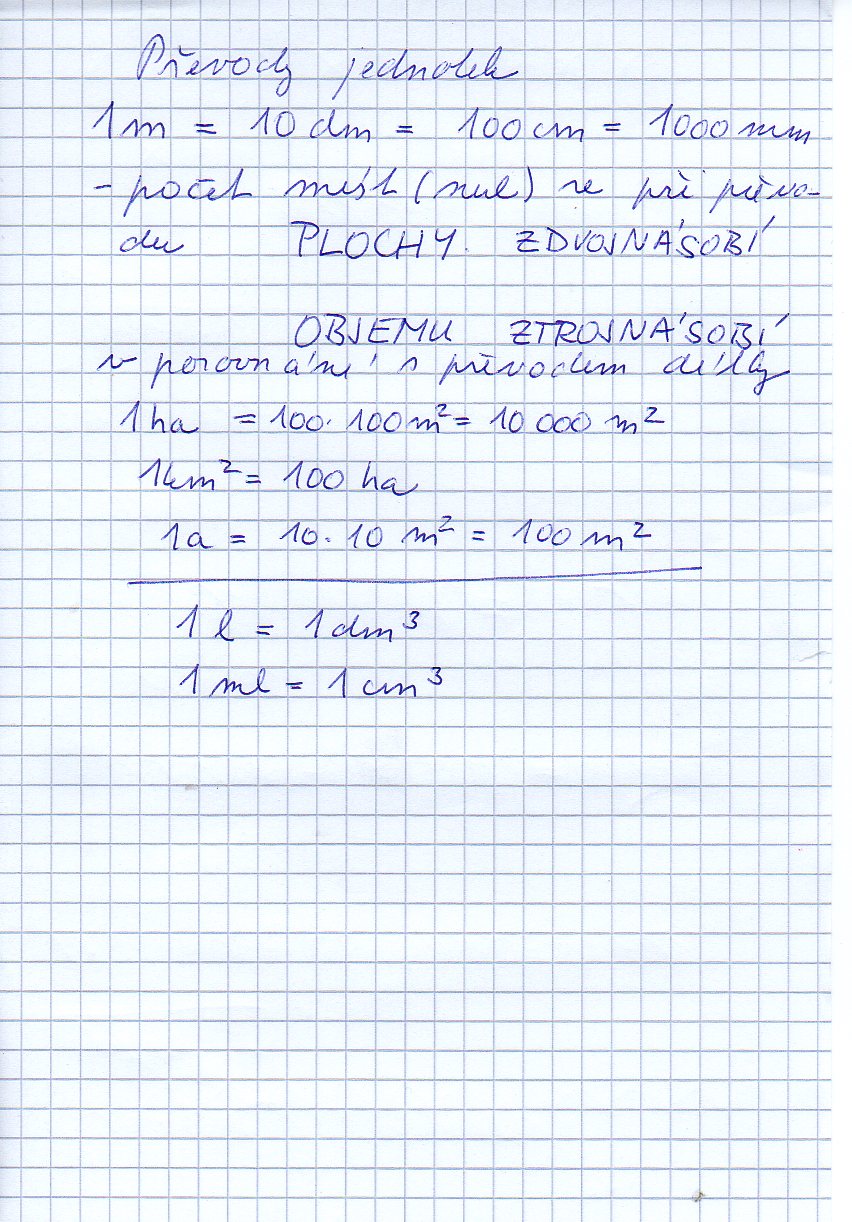 Převody jednotek
1m = 10 dm = 100 cm = 1000 mm
- počet míst (nul) se při převo-
du PLOCHY ZDVOJNÁSOBÍ
OBJEMU ZTROJNÁSOBÍ
v porovnání s převodem délky
1 ha = 100 · 100 m² = 10 000 m²
1km² = 100 ha
1a = 10 · 10 m² = 100 m²
1 l = 1 dm³
1 ml = 1 cm³